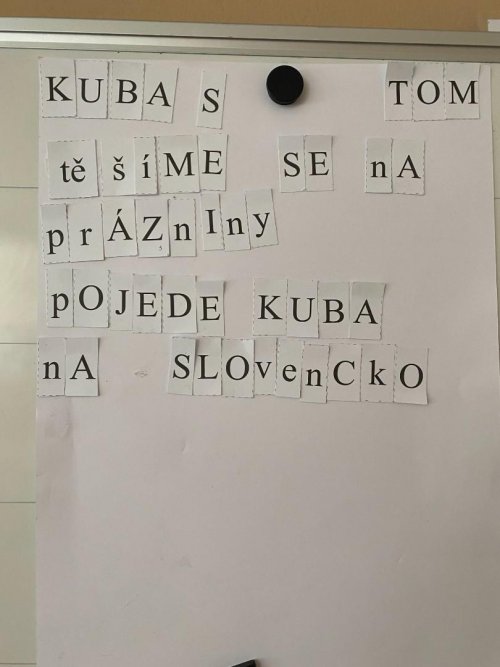 KUBA S TOM
těšíME SE nA
prÁZnIny
pOJEDE KUBA
nA SLOvenCkO